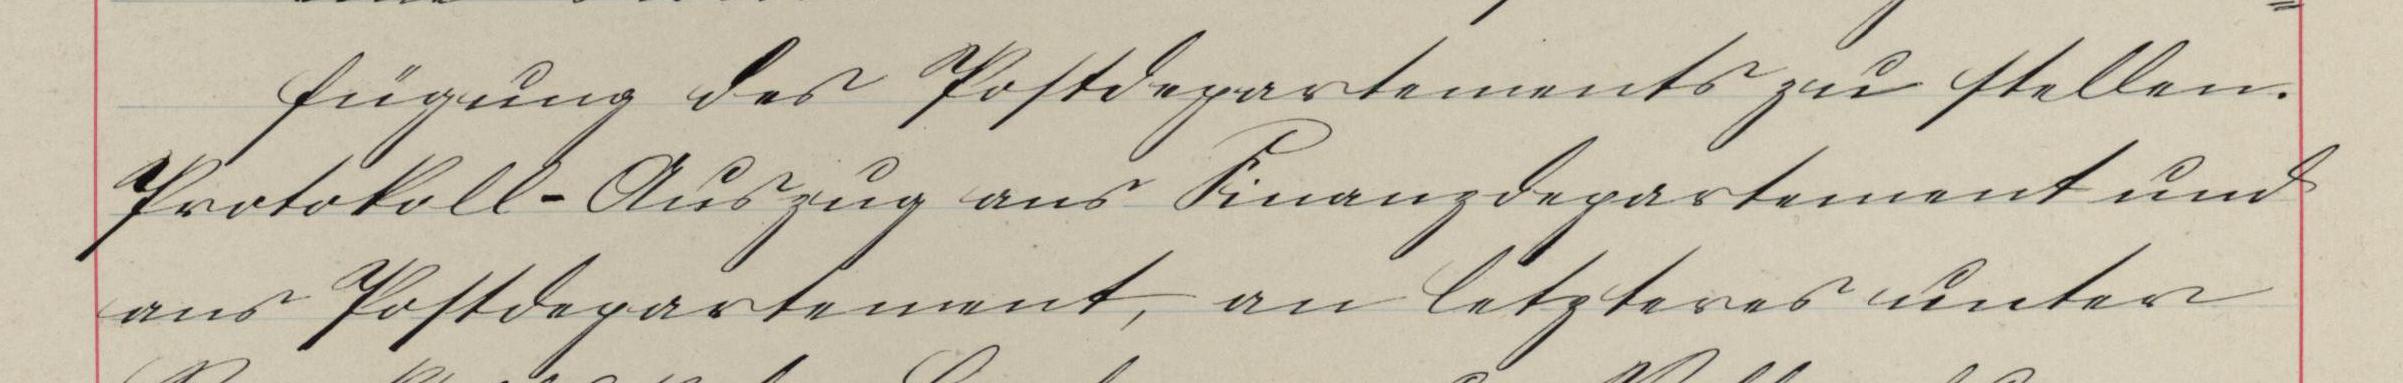 fügung des Postdepartements zu stellen.
Protokoll-Auszug ans Finanzdepartement und
ans Postdepartement, an letzteres unter